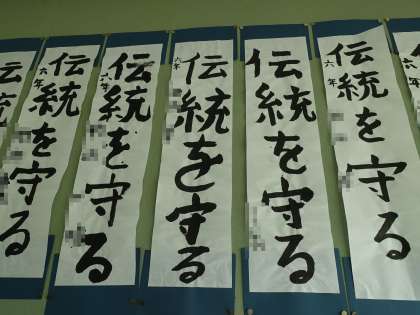 六年
伝統を守る
六年
伝統を守る
伝統を守る
六年
伝統を守る
六年
伝統を守る
六年
統を守る